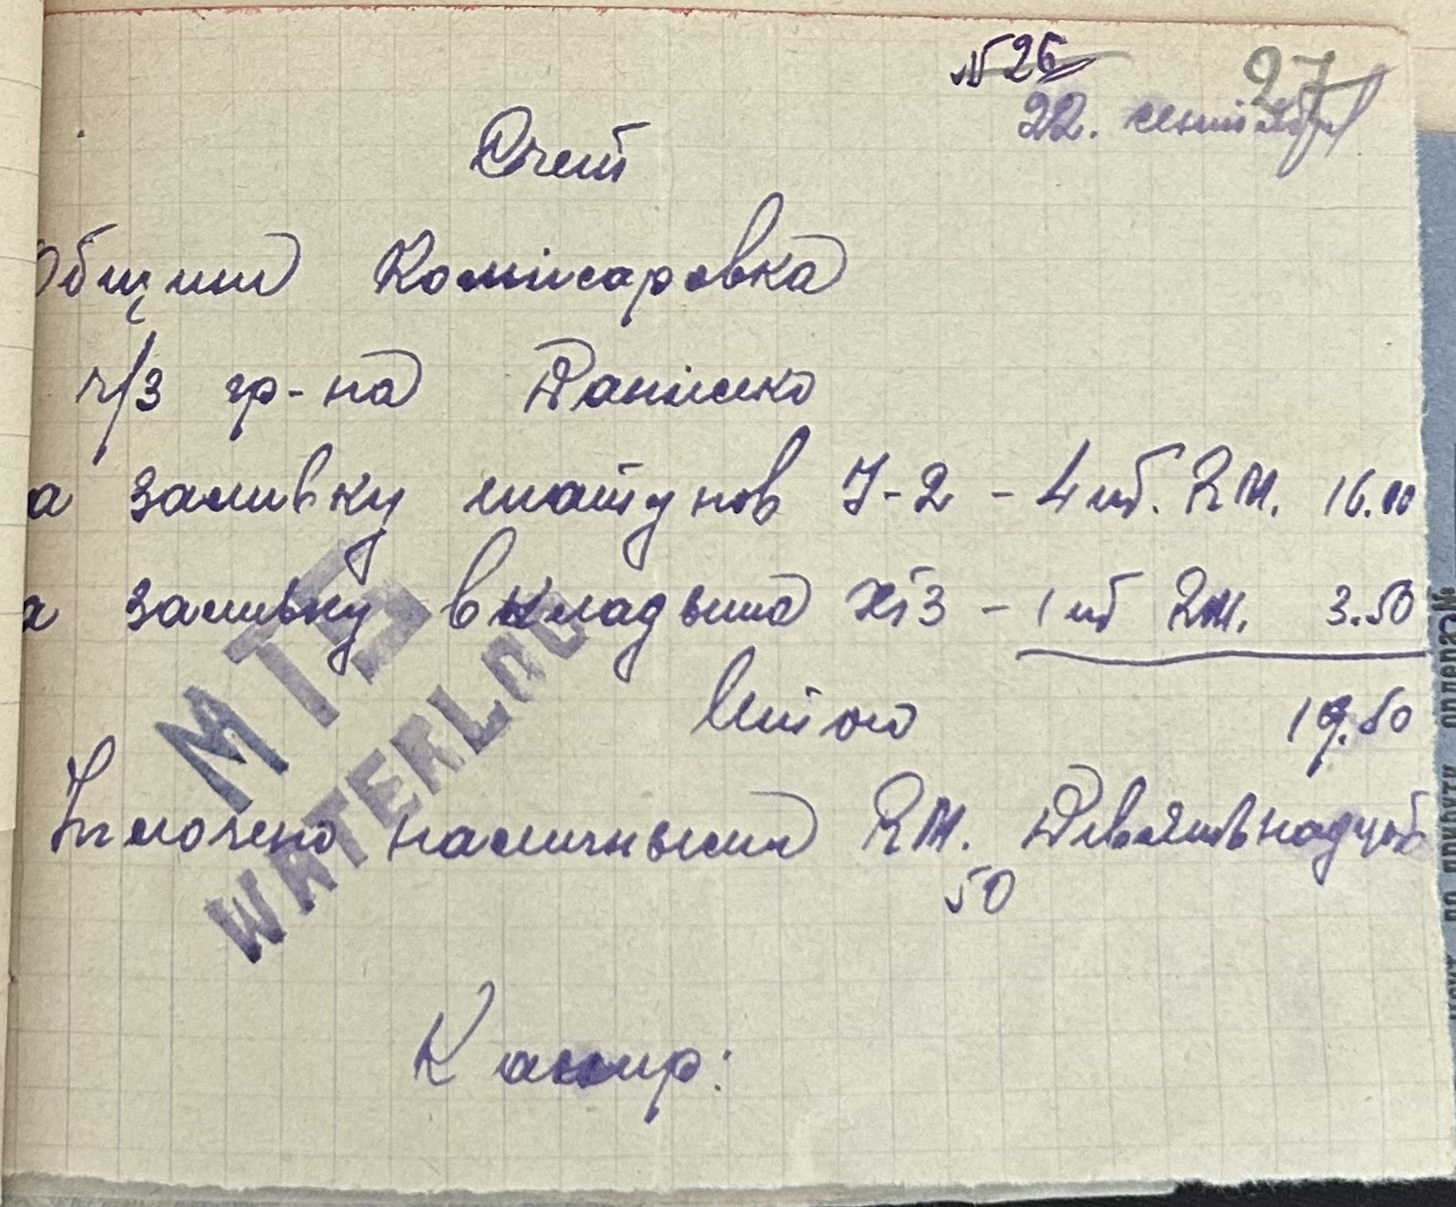 №26
27
22. сентября
Счет
Общины Комисаровка
ч/з гр-на Данилко
а заливку шатунов У-2 - 4 шт. RM. 16.00
а заливку вкладыша ХТЗ - 1 шт RM. 3.50
Итого 19.50
Уплочено наличными RM. Девятнадцать
50
Кассир:
MTS
WATERLOO